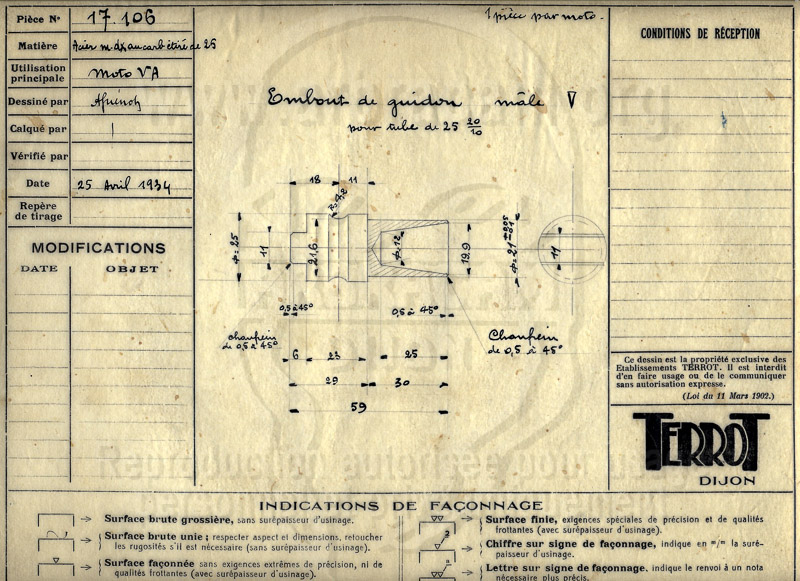 Pièce N° 17.106
Matière Acier m dx au carb étiré de 25
Utilisation
principale Moto VA
Dessiné par
Calqué par
Vérifié par
Date 25 Avril 1934
Repère
de tirage
MODIFICATIONS
DATE OBJET
1 pièce par moto.
Embout de guidon mâle ∇
pour tube de 25 20/10
18 11
R=4,8
φ=25
11
21,6
φ 12
19,9
φ=21
11
0,5 à 45°
0,5 à 45°
chanfrein
de 0,5 à 45°
Chanfrein
de 0,5 à 45°
6 23 25
29 30
59
CONDITIONS DE RÉCEPTION
Ce dessin est la propriété exclusive des
Etablissements TERROT. Il est interdit
d'en faire usage ou de le communiquer
sans autorisation expresse.
(Loi du 11 Mars 1902.)
TERROT
DIJON
Reproduction autorisée pour
INDICATIONS DE FAÇONNAGE
Surface brute grossière, sans surépaisseur d'usinage.
Surface brute unie ; respecter aspect et dimensions, retoucher
les rugosités s'il est nécessaire (sans surépaisseur d'usinage).
Surface façonnée sans exigences extrêmes de précision, ni de
qualités frottantes (avec surépaisseur d'usinage).
Surface finie, exigences spéciales de précision et de qualités
frottantes (avec surépaisseur d'usinage).
2
Chiffre sur signe de façonnage, indique en m/m la suré-
paisseur d'usinage.
a
Lettre sur signe de façonnage, indique le renvoi à un nota
nécessaire plus précis.